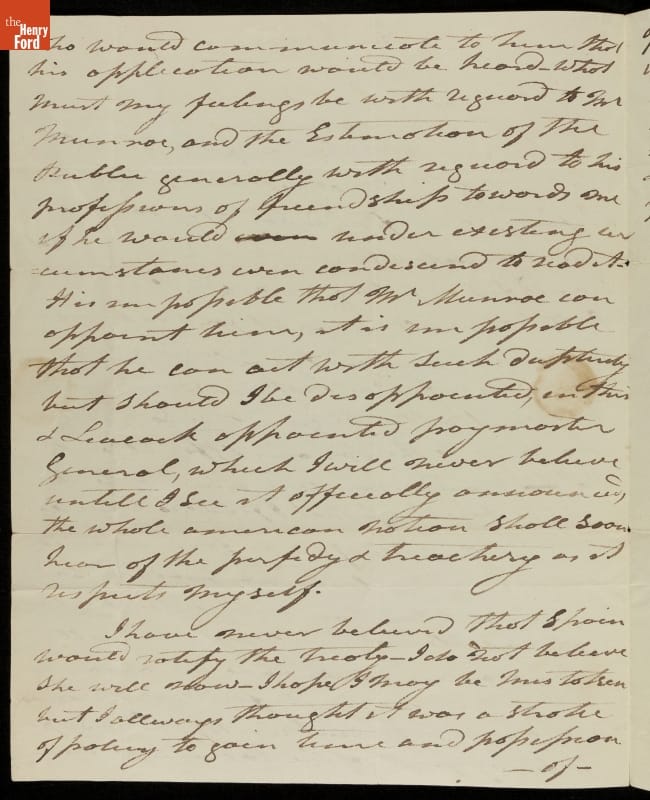 the Henry Ford
who would communicate to him that
his application would be heard what
must my feelings be with reguard to Mr
Munroe, and the Estemation of the
Public generally with reguard to his
professions of freindship towards me
if he would even under existing cir
cumstances even condescend to read it.
It is impossible that Mr Munroe can
appoint him, it is impossible
that he can act with such duplicity
but should I be disappointed, in this
& Leacock appointed paymaster
General, which I will never believe
untill I see it officially announced,
the whole american nation shall soon
hear of the perfidy & treachery as it
respects myself.
I have never believed that Spain
would ratify the treaty—I do not believe
she will now—I hope I may be mistaken
but I allways thought it was a stroke
of policy to gain time and possession
— of —